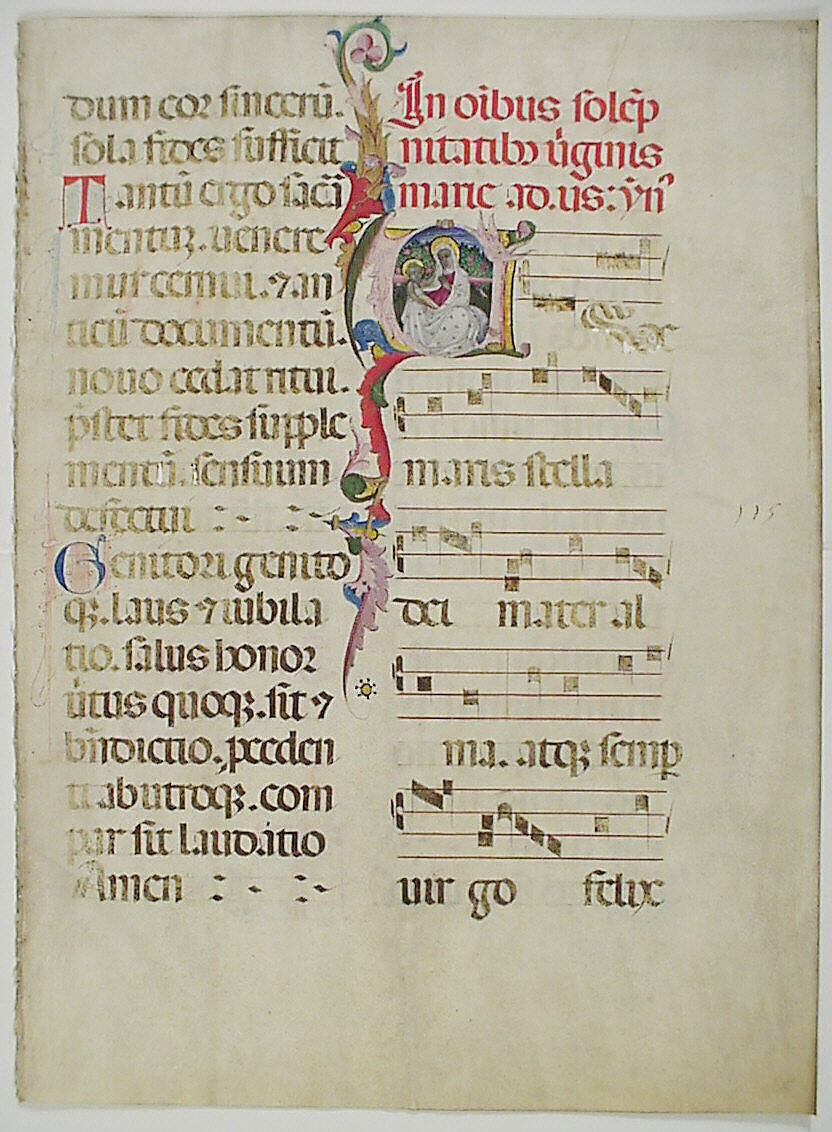 dum cor sincerū.
sola fides sufficit
Tantū ergo sacͣ
mentuꝝ. uenere
mur cernui. ⁊ an
ticū documentū.
nouo cedat ritui.
p̄stet fides supple
mentū. sensuum
defectui
Genitori genito
qꝫ. laus ⁊ iubila
tio. salus honor
ūtus quoqꝫ. sit ⁊
bn̄dictio. pcedēn
ti ab utroqꝫ. com
par sit laudatio
Amen
In oībus solēp
nitatibꝰ ūginis
marie ad. us: yn̄
maris stella
dei mater al
ma. atqꝫ semꝑ
uir go felix
115